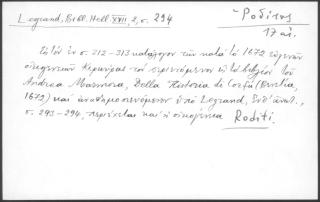 Legrand, Bibl. Hell. XVII, 2, σ. 294
Ροδίτης
17 αἰ.
Εἰς τὸν ἐν σ. 212-313 κατάλογον τῶν κατὰ τὸ 1672 εὐγενῶν
οἰκογενειῶν Κερκύρας τὸν περιεχόμενον εἰς τὸ βιβλίον τοῦ
Andrea Marmora, Della Historia de Corfù (Venetia,
1672) καὶ ἀναδημοσιευόμενον ὑπὸ Legrand, ἔνθ' ἀνωτ.,
σ. 293-294, περιέχεται καὶ ἡ οἰκογένεια Roditi.